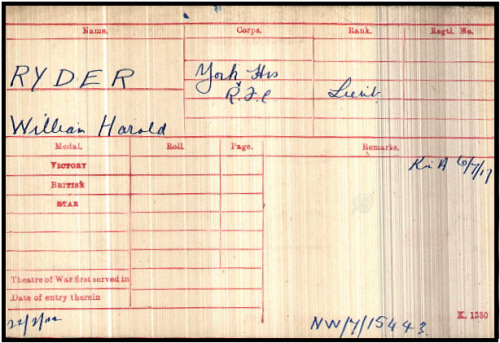 Name. Corps. Rank. Regtl. No.
RYDER York Hrs
& R.F.C Lieut.
William Harold
Medal. Roll. Page. Remarks.
VICTORY K in A 6/7/17
BRITISH
STAR
Theatre of War first served in
Date of entry therein
K. 1380
NW/7/15443.